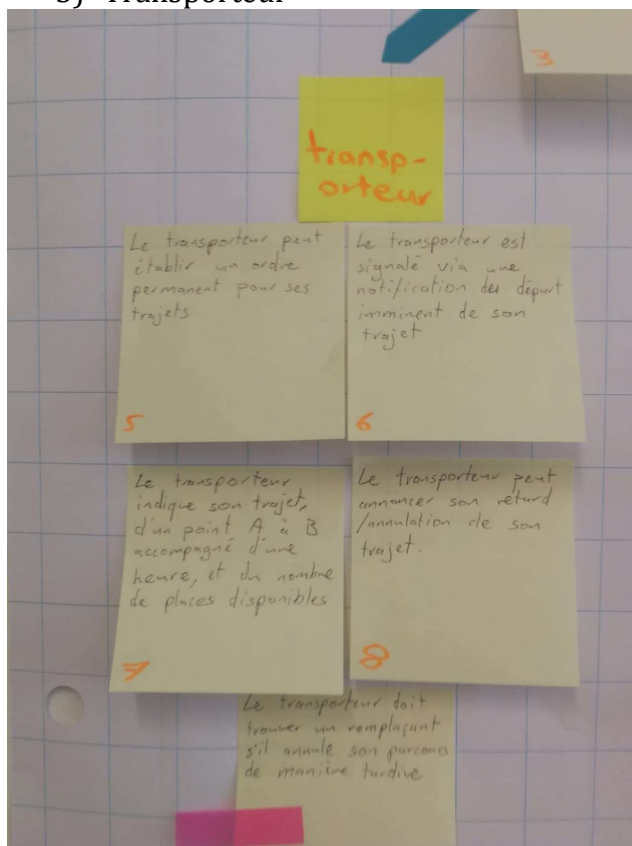 b) Transporteur
3
transp-
orteur
Le transporteur peut
établir un ordre
permanent pour ses
trajets
5
Le transporteur est
signalé via une
notification du départ
imminent de son
trajet
6
Le transporteur
indique son trajet,
d'un point A à B
accompagné d'une
heure, et du nombre
de places disponibles
7
Le transporteur peut
annoncer son retard
/annulation de son
trajet.
8
Le transporteur doit
trouver un remplaçant
s'il annule son parcours
de manière tardive